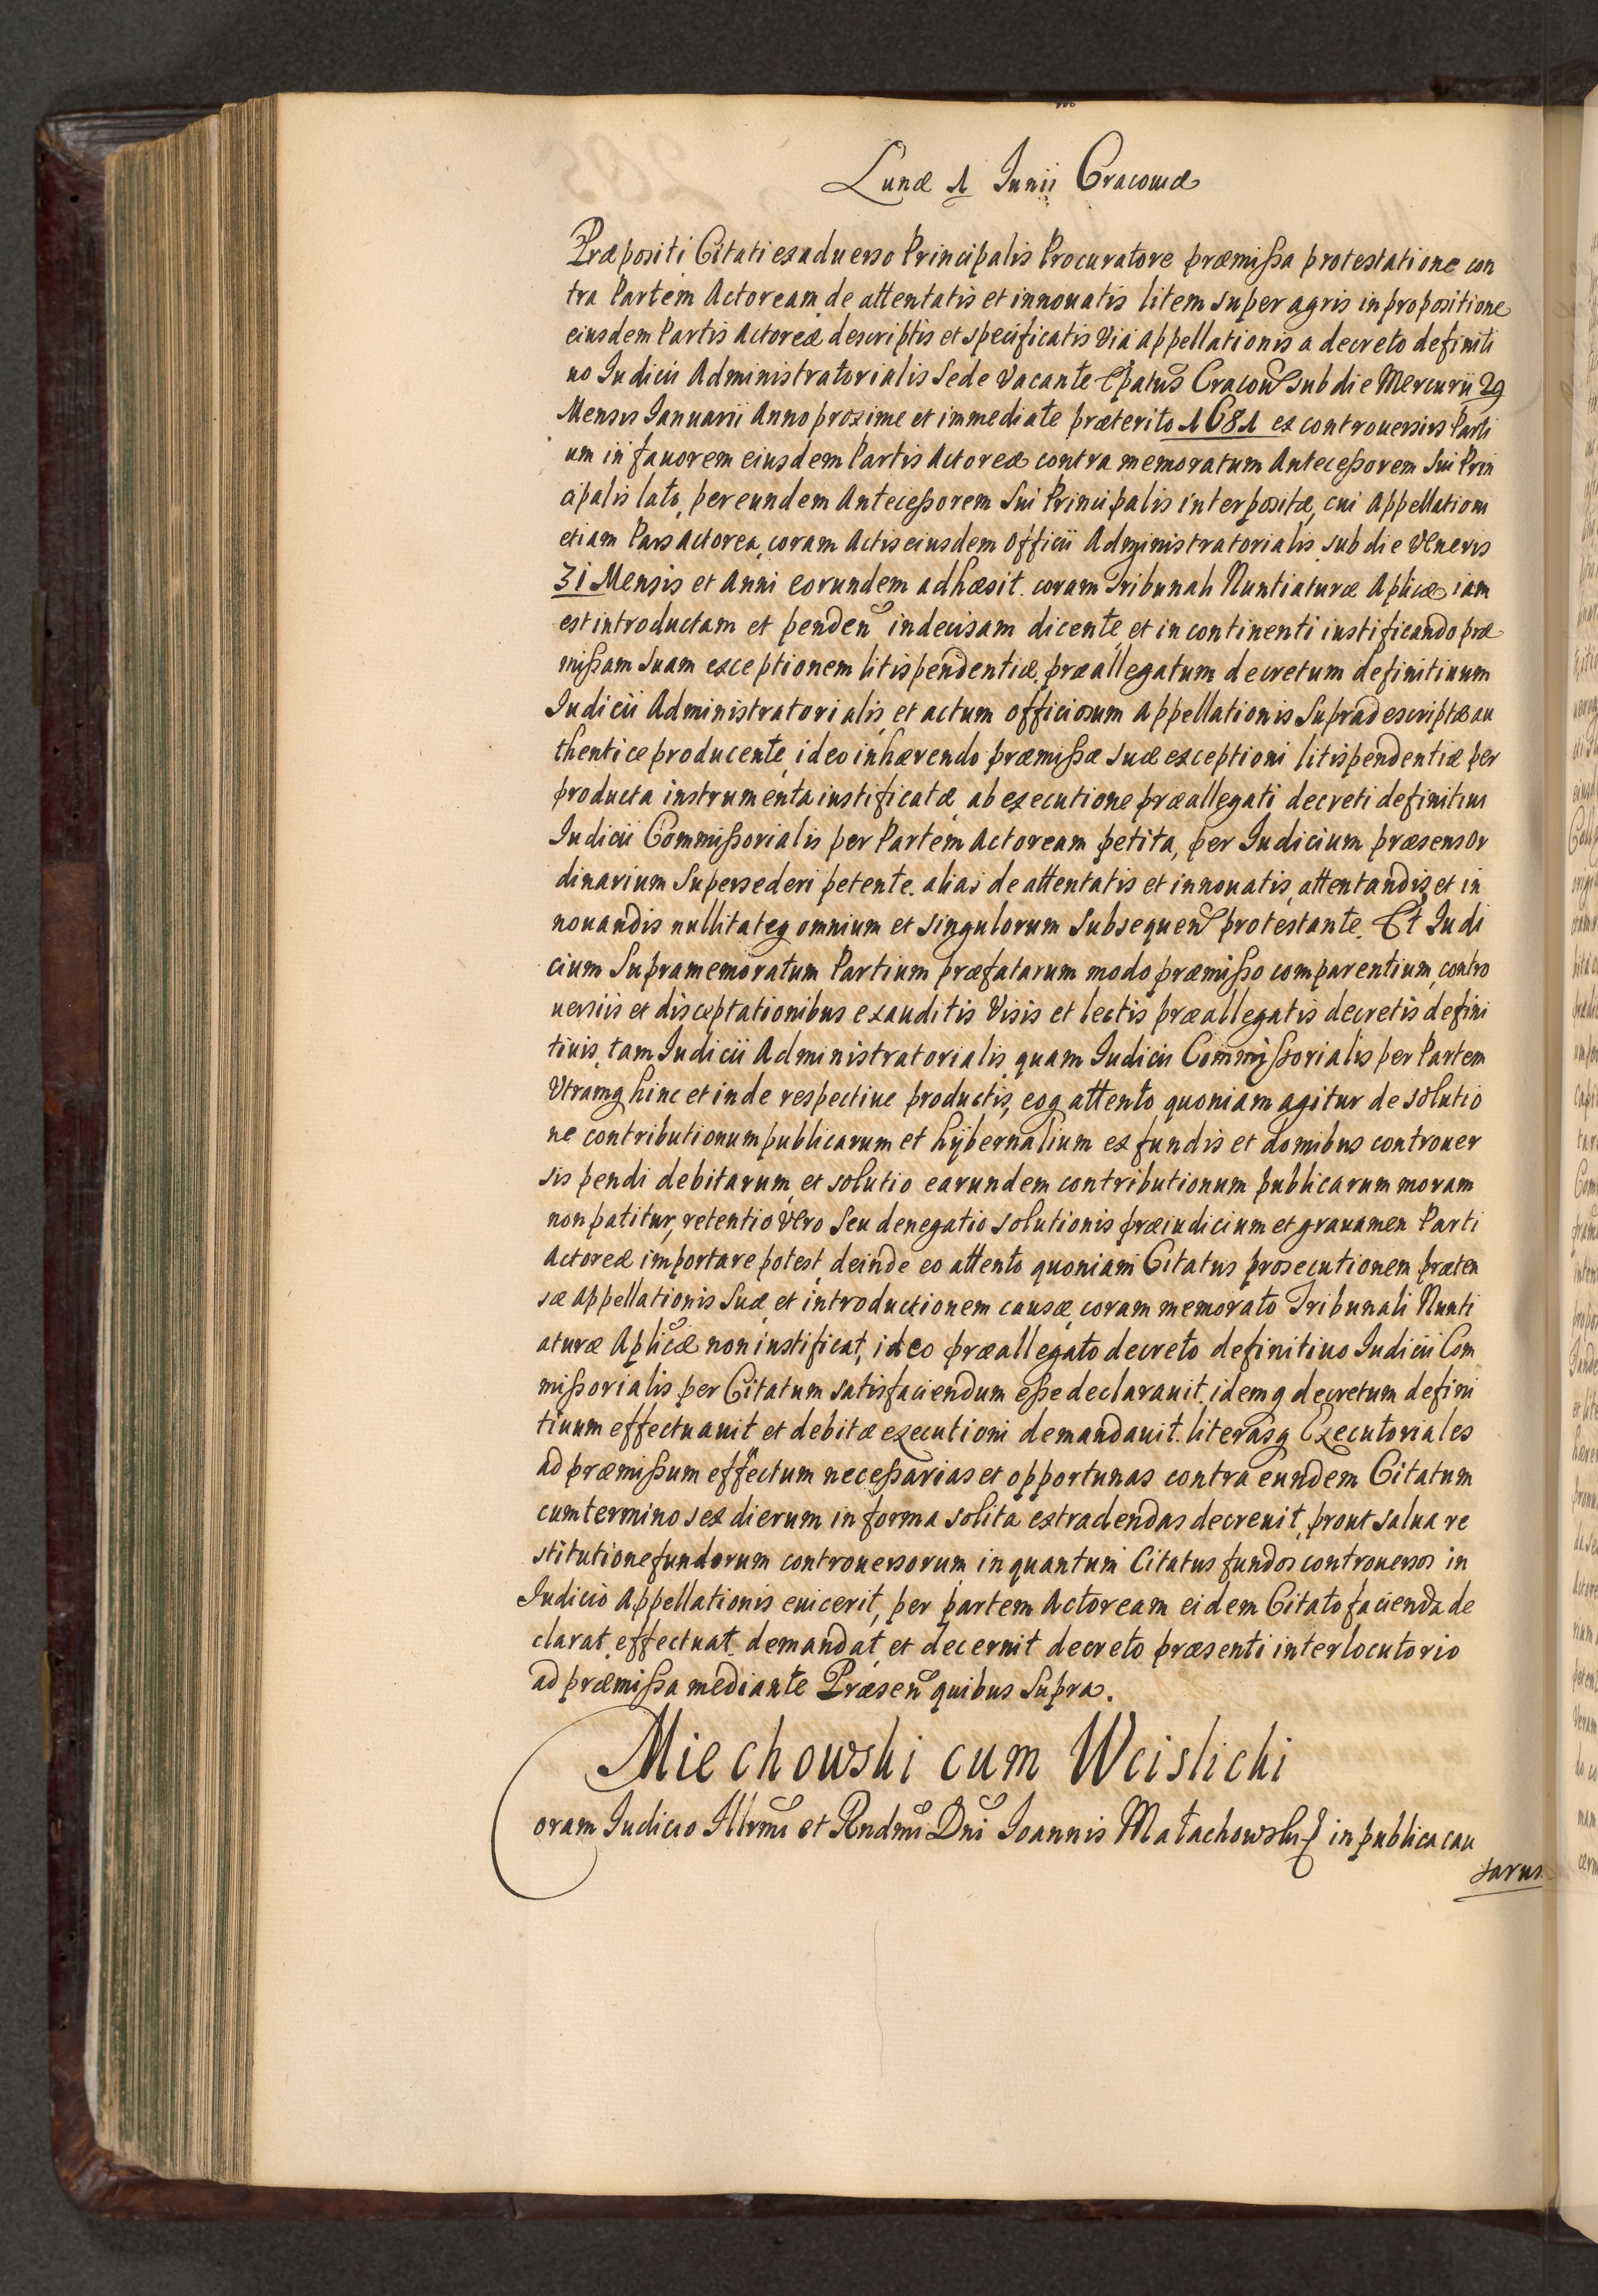 Lunæ 1 Junii Cracouiæ
Præpositi Citati ex aduerso Principalis Procuratore præmissa protestatione con
tra Partem Actoream de attentatis et innouatis litem super agris in propositione
eiusdem Partis Actoreæ descriptis et specificatis Via Appellationis a decreto definiti
uo Judicii Administratorialis Sede Vacante Epatus Cracouien sub die Mercurii 29
Mensis Januarii Anno proxime et immediate præterito 1681 ex controuersiis Parti
um in fauorem eiusdem Partis Actoreæ contra memoratum Antecessorem Sui Prin
cipalis lato, per eundem Antecessorem Sui Principalis interpositæ, cui Appellationi
etiam Pars Actorea, coram Actis eiusdem Officii Administratorialis sub die Veneris
31 Mensis et Anni eorundem adhæsit. coram Tribunali Nuntiaturæ Aplicæ iam
est introductam et penden indecisam dicente, et in continenti iustificando præ
missam Suam exceptionem litispendentiæ, præallegatum decretum definitiuum
Judicii Administratorialis, et actum officiosum Appellationis Supradescriptæ au
thentice producente, ideo inhærendo præmissæ suæ exceptioni litispendentiæ per
producta instrumenta iustificatæ, ab executione præallegati decreti definitiui
Judicii Commissorialis per Partem Actoream petita, per Judicium præsens Or
dinarium Supersederi petente. alias de attentatis et innouatis, attentandis et in
nouandis nullitateq omnium et singulorum Subsequen protestante. Et Judi
cium Supramemoratum Partium præfatarum modo præmisso comparentium, contro
uersiis et disceptationibus exauditis Visis et lectis præallegatis decretis defini
tiuis, tam Judicii Administratorialis, quam Judicii Commissorialis per Partem
Vtramq hinc et inde respectiue productis, eoq attento, quoniam agitur de solutio
ne contributionum publicarum et hÿbernalium ex fundis et domibus controuer
sis pendi debitarum, et solutio earundem contributionum publicarum moram
non patitur, retentio Vero Seu denegatio solutionis præiudicium et grauamen Parti
Actoreæ importare potest, deinde eo attento quoniam Citatus prosecutionem præten
sæ Appellationis Suæ, et introductionem causæ, coram memorato Tribunali Nunti
aturæ Aplicæ non iustificat, ideo præallegato decreto definitiuo Judicii Com
missorialis, per Citatum satisfaciendum esse declarauit. idemq decretum defini
tiuum effectuauit et debitæ executioni demandauit. literasq Executoriales
ad præmissum effectum necessarias et opportunas contra eundem Citatum
cum termino sex dierum in forma solita extradendas decreuit, prout salua re
stitutione fundorum controuersorum, in quantum Citatus fundos controuersos in
Judicio Appellationis euicerit, per partem Actoream eidem Citato facienda de
clarat, effectuat, demandat, et decernit decreto præsenti interlocutorio
ad præmissa mediante Præsen quibus Supra.
Miechowski cum Wcislicki
Coram Judicio Illrmi et Rndmi Dni Joannis Małachowski in publica cau
sarum